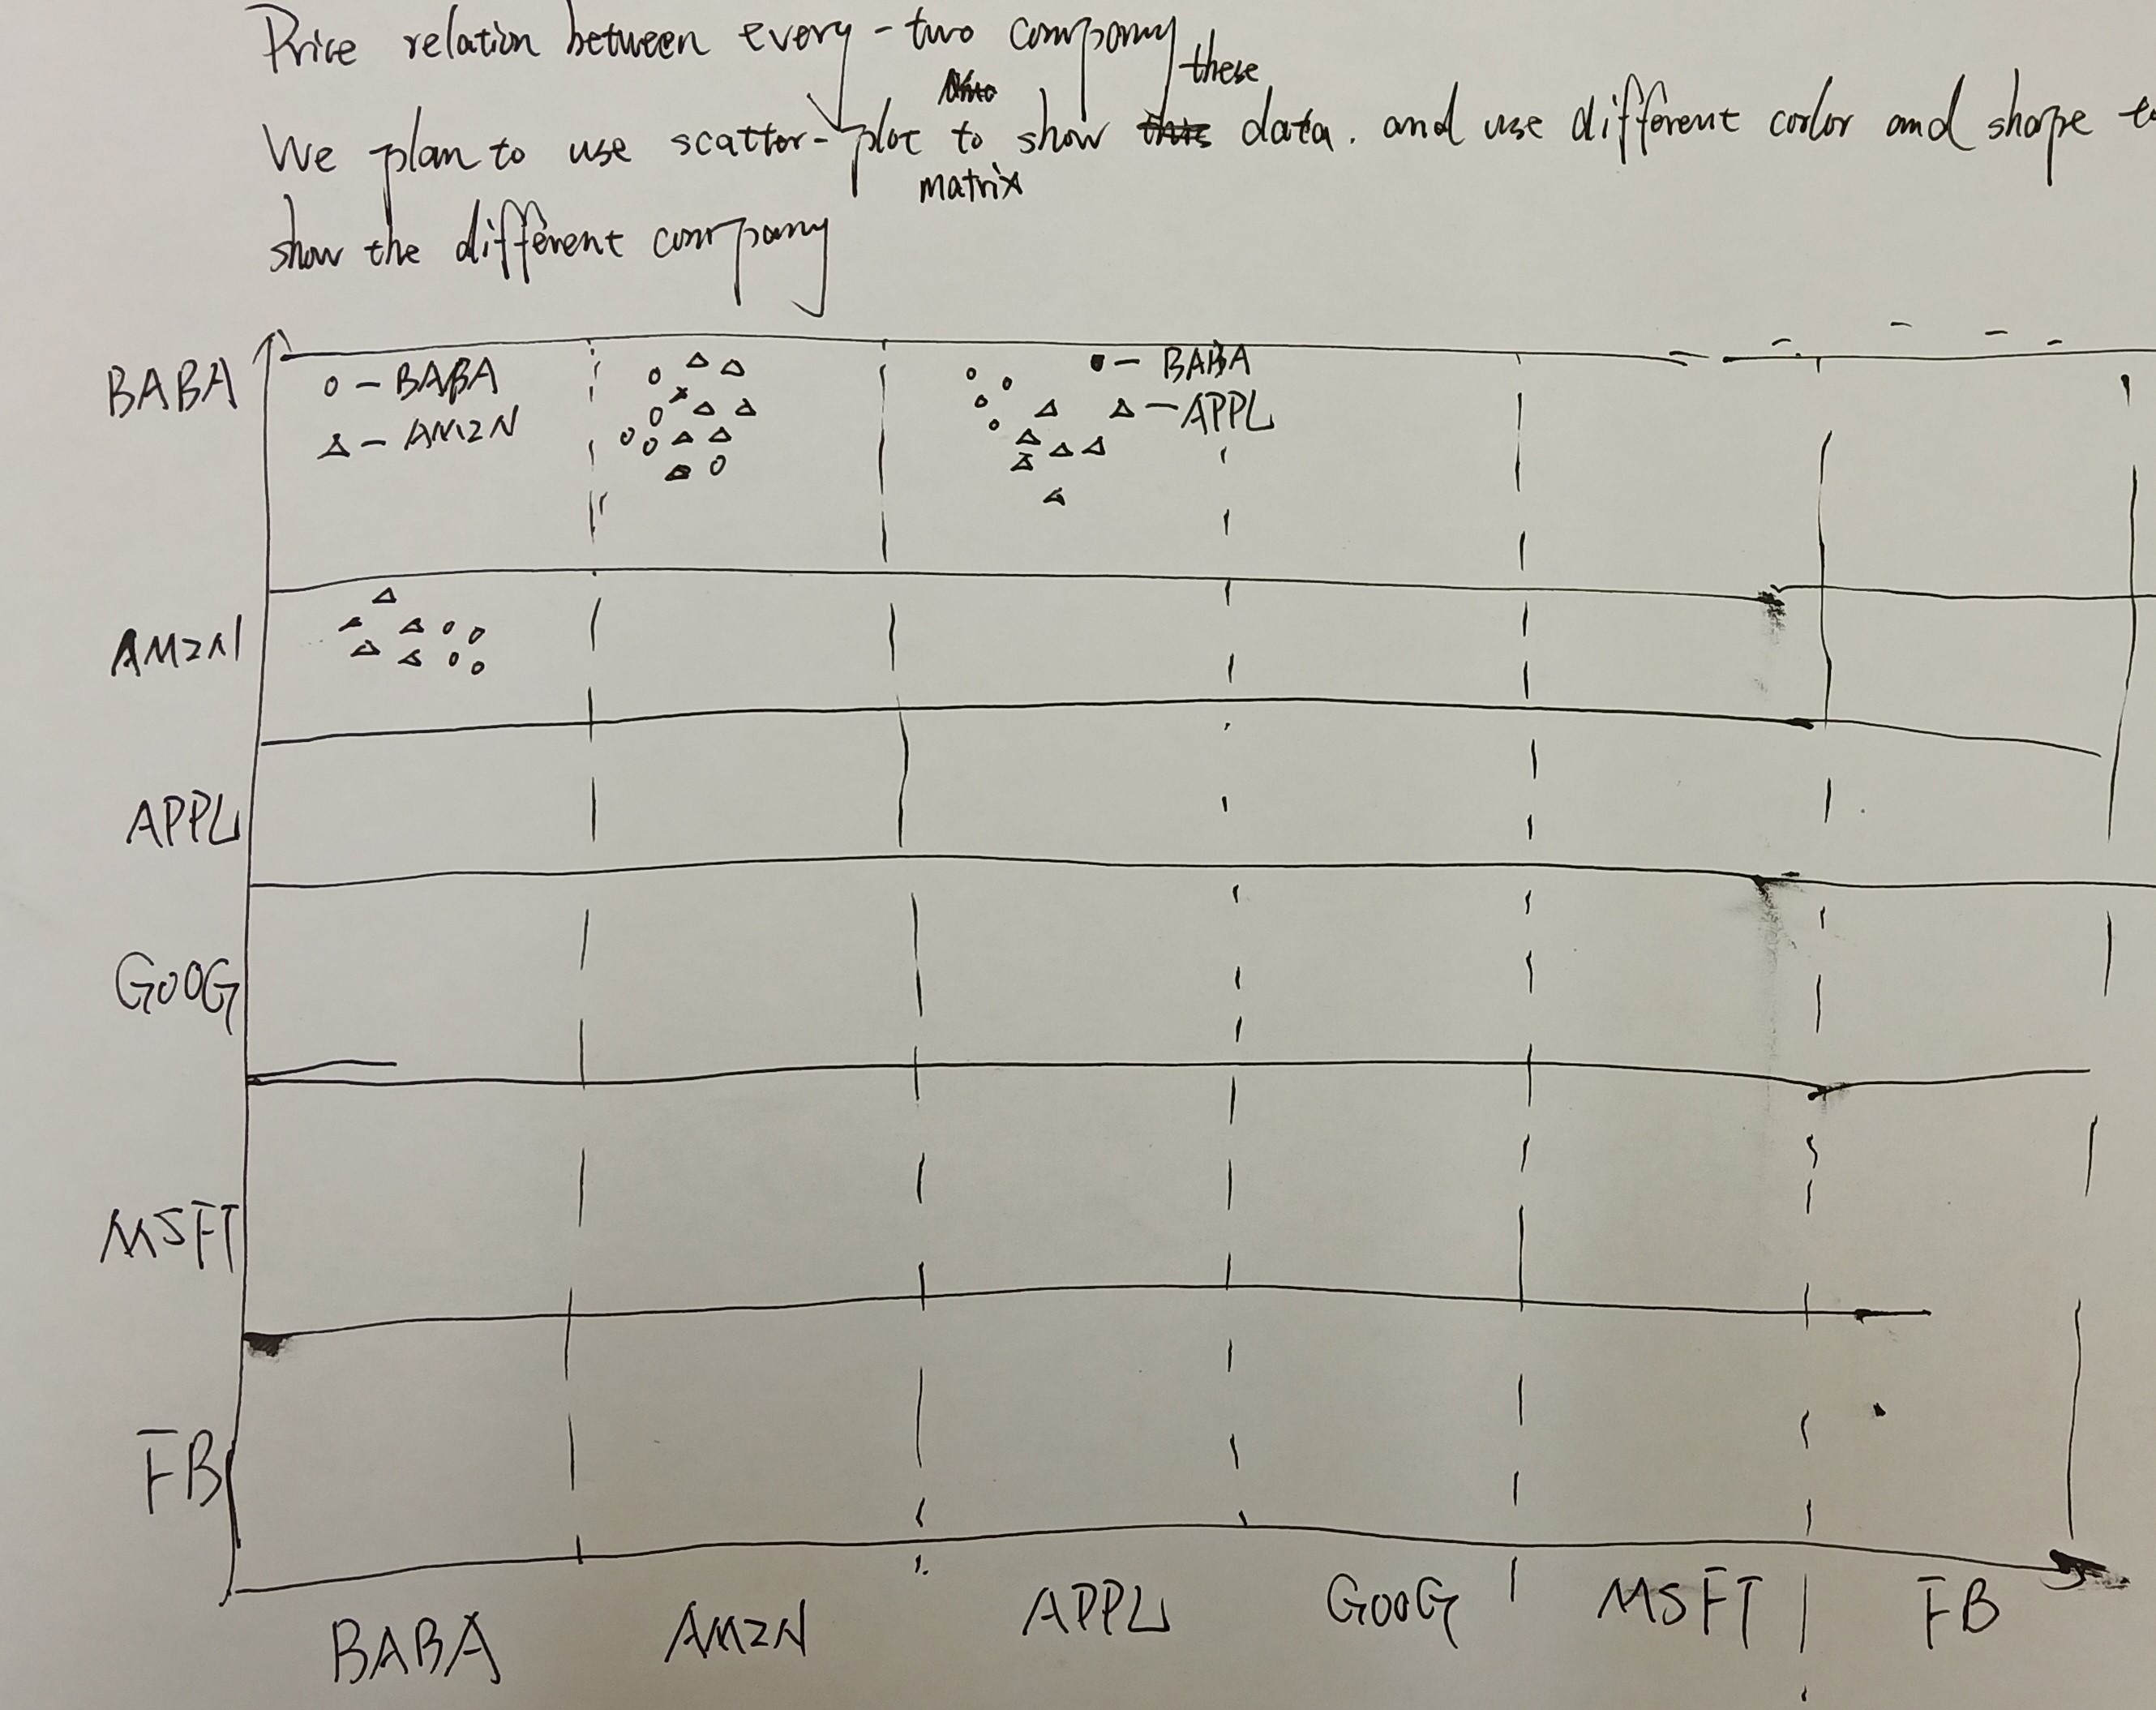 Price relation between every-two company
these
We plan to use scatter-plot to show data. and use different color and shape to
matrix
show the different company
BABA
o - BABA
△ - AMZN
• - BABA
△ - APPL
AMZN
APPL
GOOG
MSFT
FB
BABA AMZN APPL GOOG MSFT FB